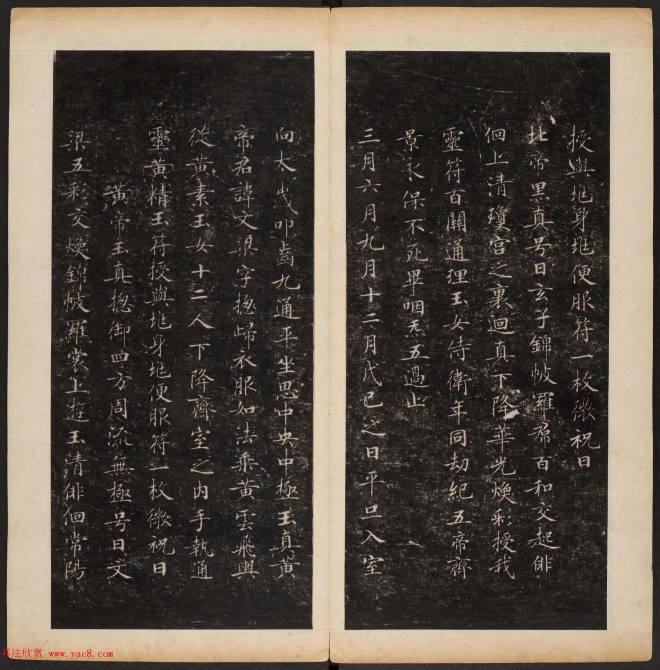 授與地身地便服符一枚微祝曰
北帝黑真号曰玄子錦帔羅帬百和交起俳
佪上清瓊宮之裏迴真下降華光煥彩授我
靈符百關通理玉女侍衛年同劫紀五帝齊
景永保不死畢咽炁五過止
三月六月九月十二月戊己之日平旦入室
向太歲叩齒九通平坐思中央中極玉真黃
帝君諱文梁字揔歸衣服如法乘黃雲飛輿
從黃素玉女十二人下降齋室之內手執通
靈黃精玉符授與地身地便服符一枚微祝曰
黃帝玉真揔御四方周流無極号曰文
梁五彩交煥錦帔羅裳上遊玉清俳佪常陽
书法欣赏 www.yac8.com